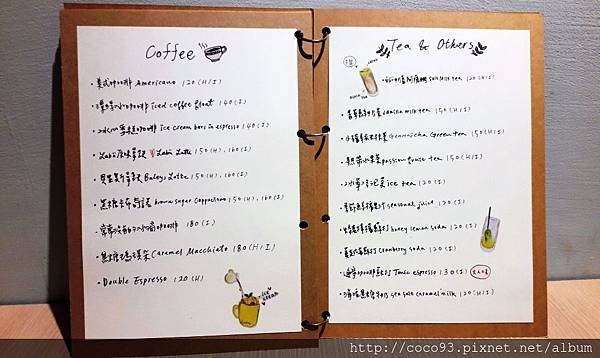 Coffee
美式咖啡 Americano 120 (H/I)
漂浮冰咖啡 iced coffee float 140 (I)
ice cream bars in espresso 140 (I)
Labi Latte 150 (H), 160 (I)
貝里斯拿鐵 Baileys Latte 150 (H), 160 (I)
黑糖卡布奇諾 brown sugar Cappuccino 150 (H), 160 (I)
180 (I)
焦糖瑪琪朵 Caramel Macchiato 180 (H/I)
Double Espresso 120 (H)
Tea & Others
milk tea 120 (H/I)
sencha milk tea 150 (H/I)
Genmaicha Green tea 150 (H/I)
熱帶水果茶 passion house tea 150 (H/I)
ice tea 120 (I)
季節鮮榨果汁 seasonal juice 120 (I)
蜂蜜檸檬蘇打 honey lemon soda 120 (I)
蔓越莓蘇打 Cranberry soda 120 (I)
通寧咖啡蘇打 Tonic espresso 130 (I)
海鹽焦糖牛奶 sea salt caramel milk 120 (H/I)
http://coco93.pixnet.net/album